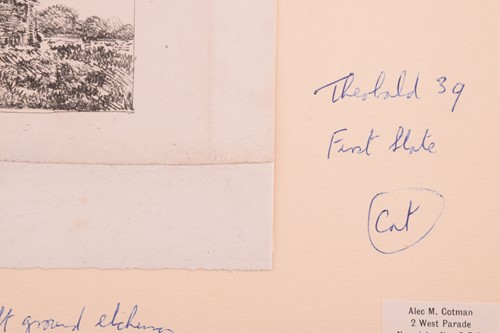 Theobald 39
First State
Cat
ground etching
Alec M. Cotman
2 West Parade